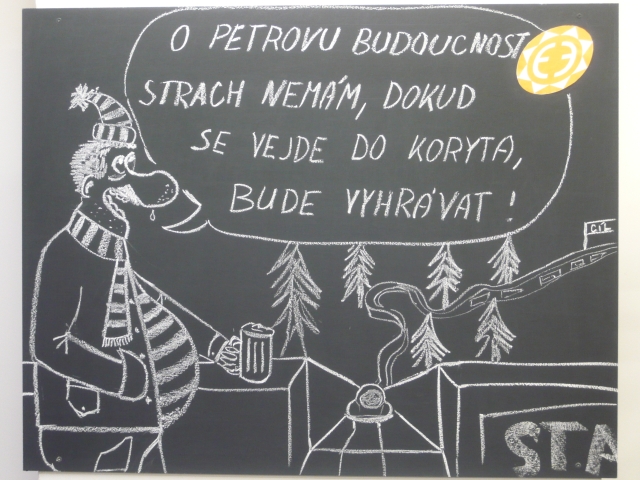 O PETROVU BUDOUCNOST
STRACH NEMÁM, DOKUD
SE VEJDE DO KORYTA,
BUDE VYHRÁVAT!
CÍL
STA